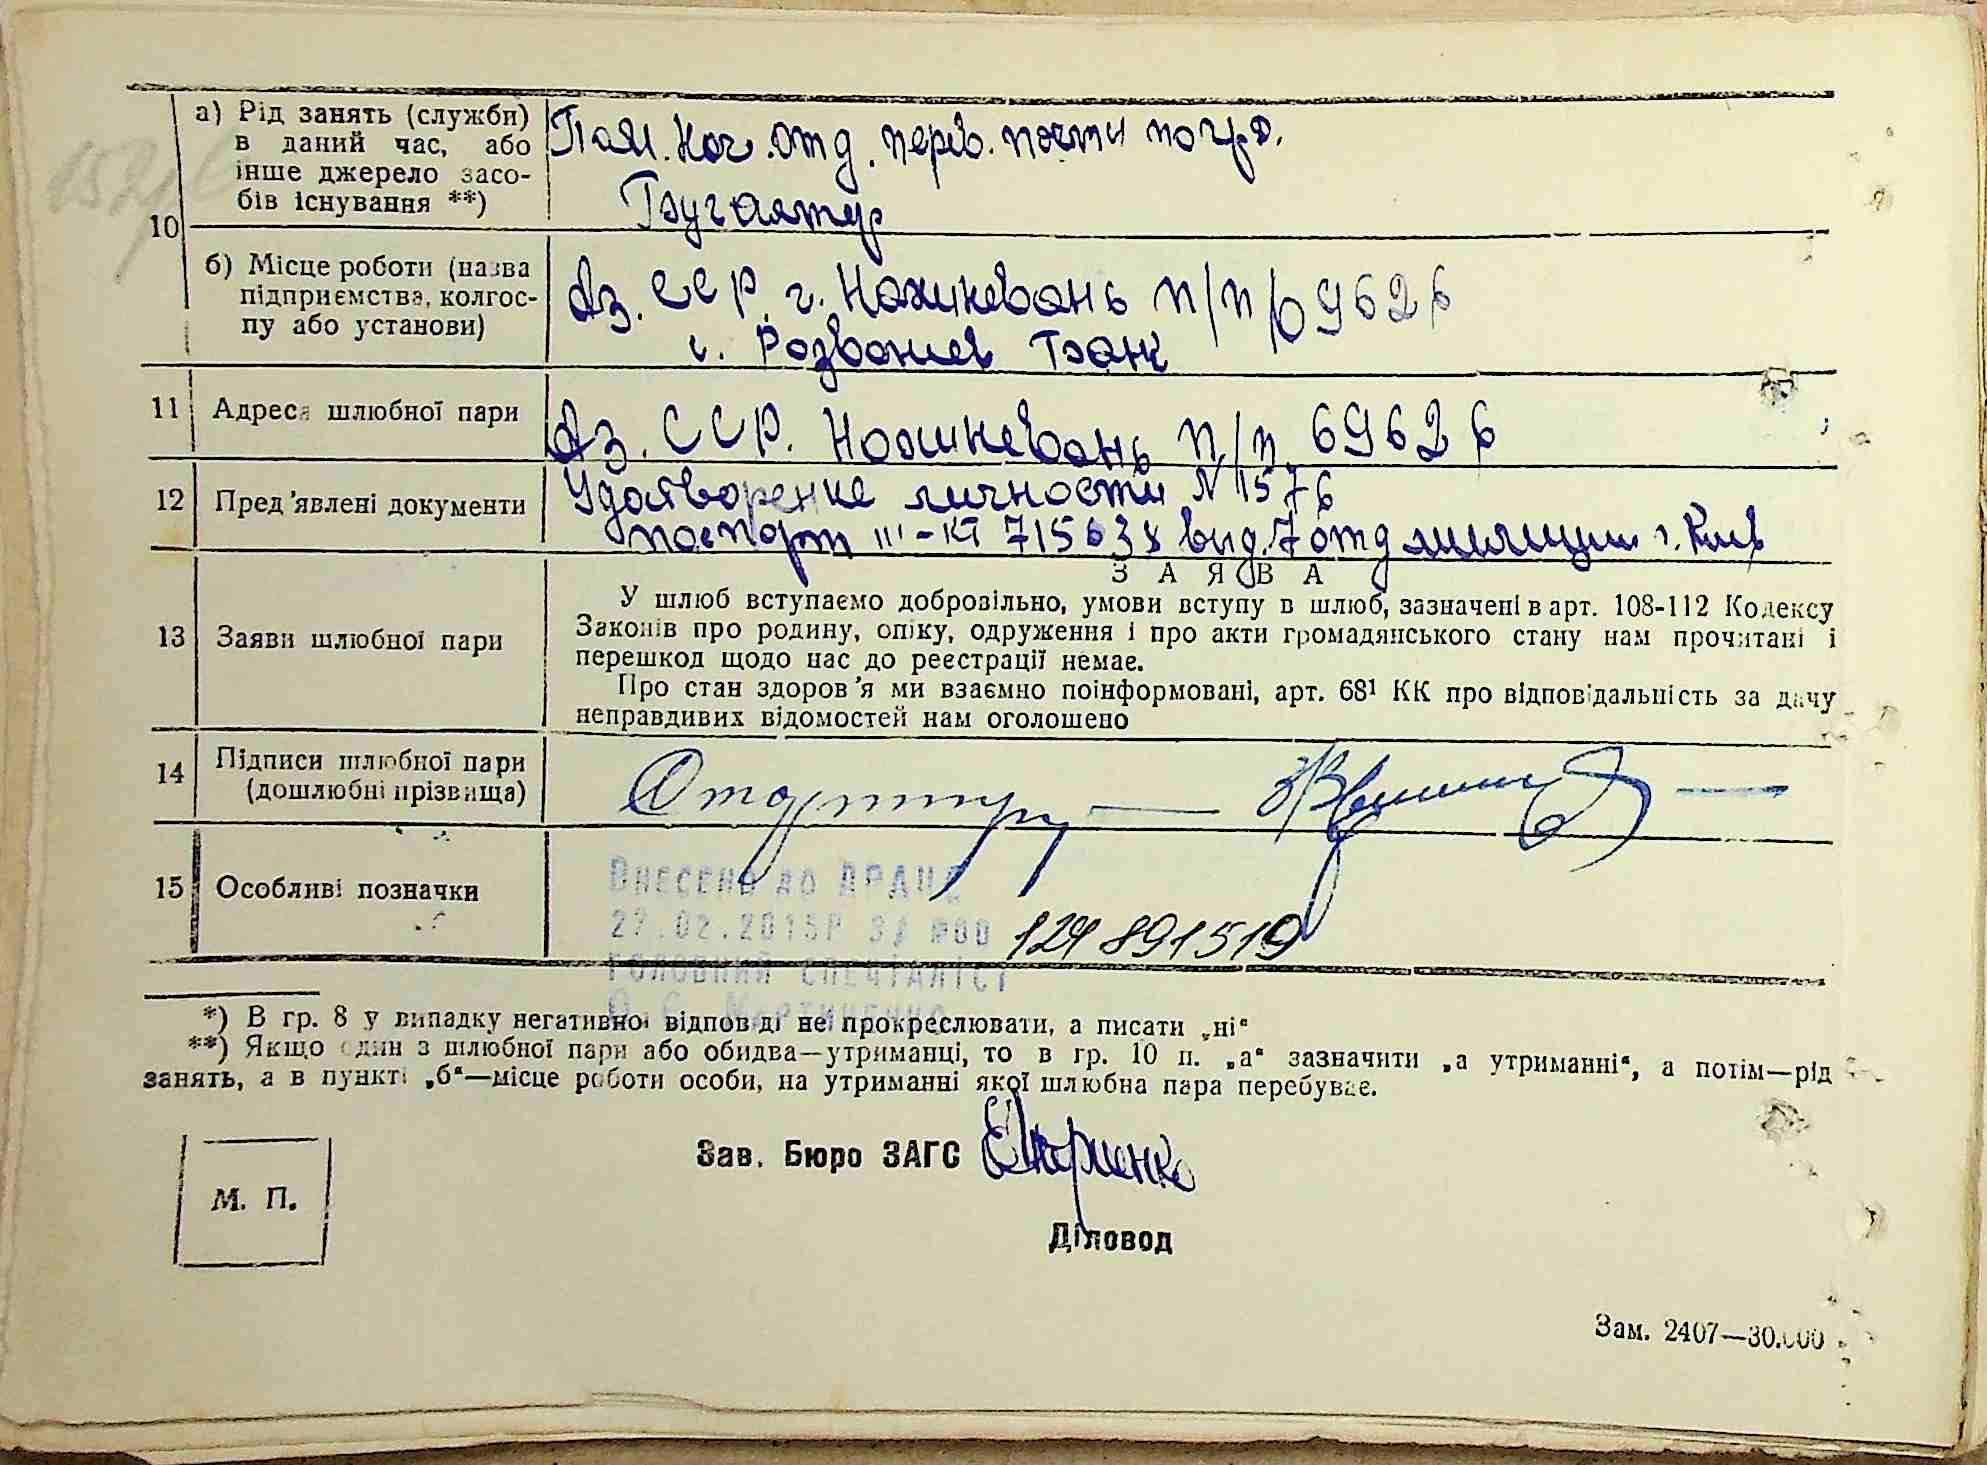 10
а) Рід занять (служби)
в даний час, або
інше джерело засо-
бів існування **)
Пом. Нач. отд. перев. почты погр.
Бугалтер
б) Місце роботи (назва
підприємства, колгос-
пу або установи)
Аз. ССР. г. Нахичевань п/п 69626
Банк
11 Адреса шлюбної пари
Аз. ССР. Нахичевань п/п. 69626
12 Пред'явлені документи
Удостворение личности N 1576
паспорт III-КТ 715638 выд. 7 отд милиции г. Киев
ЗАЯВА
13 Заяви шлюбної пари
У шлюб вступаємо добровільно, умови вступу в шлюб, зазначені в арт. 108-112 Кодексу
Законів про родину, опіку, одруження і про акти громадянського стану нам прочитані і
перешкод щодо нас до реєстрації немає.
Про стан здоров'я ми взаємно поінформовані, арт. 68¹ КК про відповідальність за дачу
неправдивих відомостей нам оголошено
14 Підписи шлюбної пари
(дошлюбні прізвища)
15 Особливі позначки
Внесено до ДРАЦС
27.02.2015р за №00 124891519
головний спеціаліст
О.Є. Мартиненко
*) В гр. 8 у випадку негативної відповіді не прокреслювати, а писати „ні“
**) Якщо один з шлюбної пари або обидва—утриманці, то в гр. 10 п. „а“ зазначити „а утриманні“, а потім—рід
занять, а в пункті „б“—місце роботи особи, на утриманні якої шлюбна пара перебуває.
Зав. Бюро ЗАГС
М. П.
Діловод
Зам. 2407—30.000